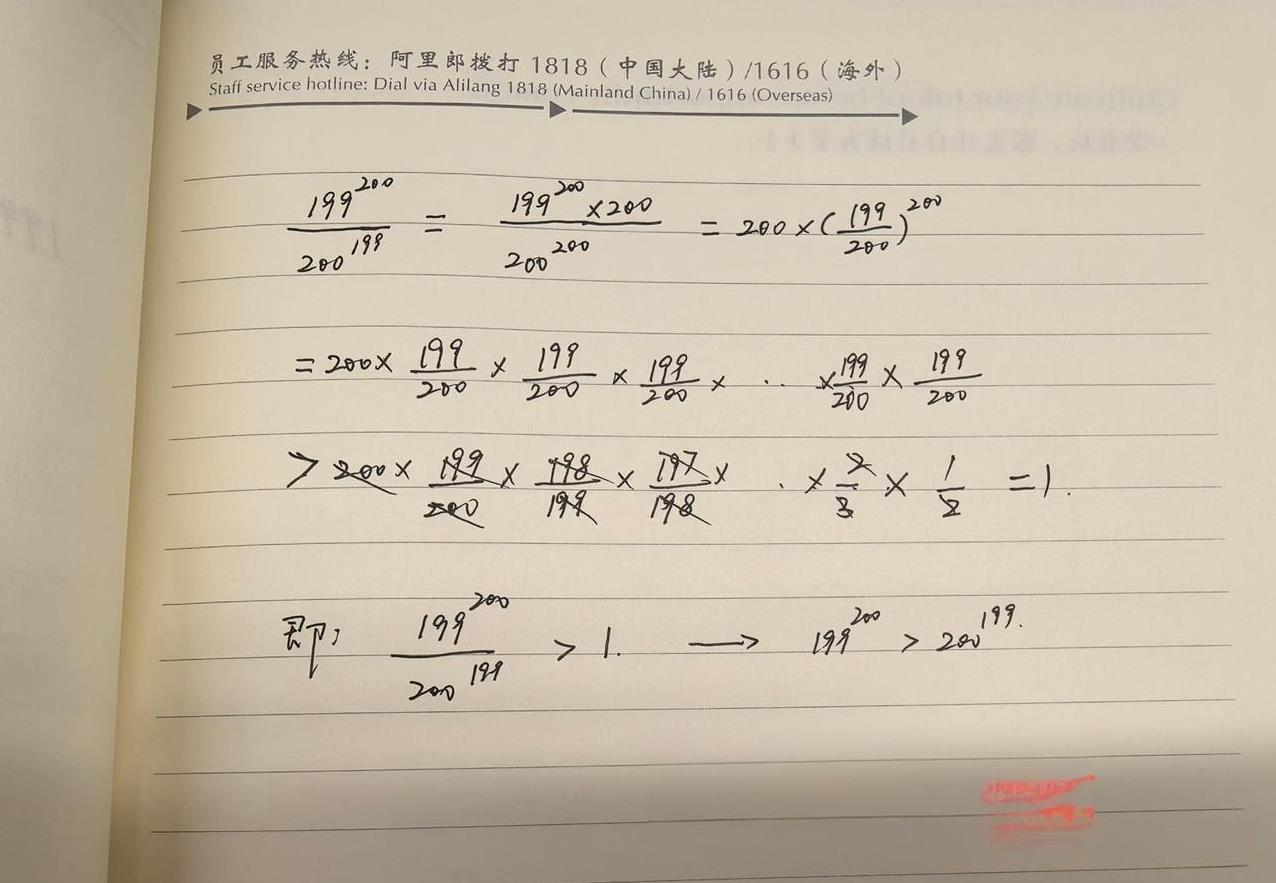 员工服务热线：阿里郎拨打 1818（中国大陆）/1616（海外）
Staff service hotline: Dial via Alilang 1818 (Mainland China) / 1616 (Overseas)
199^200 / 200^199 = 199^200 × 200 / 200^200 = 200 × (199/200)^200
= 200 × 199/200 × 199/200 × 199/200 × .. × 199/200 × 199/200
> 200 × 199/200 × 198/199 × 197/198 × . × 2/3 × 1/2 = 1.
即: 199^200 / 200^199 > 1. → 199^200 > 200^199.